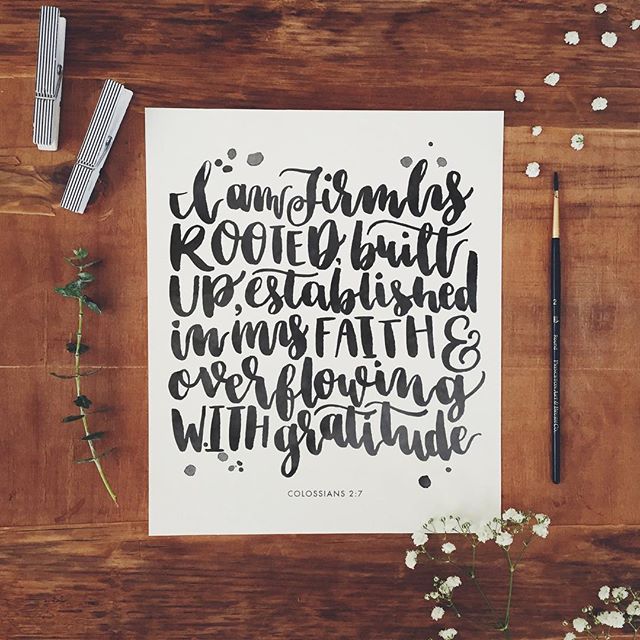 I am firmly
ROOTED, built
UP, established
in my FAITH &
overflowing
WITH gratitude
COLOSSIANS 2:7